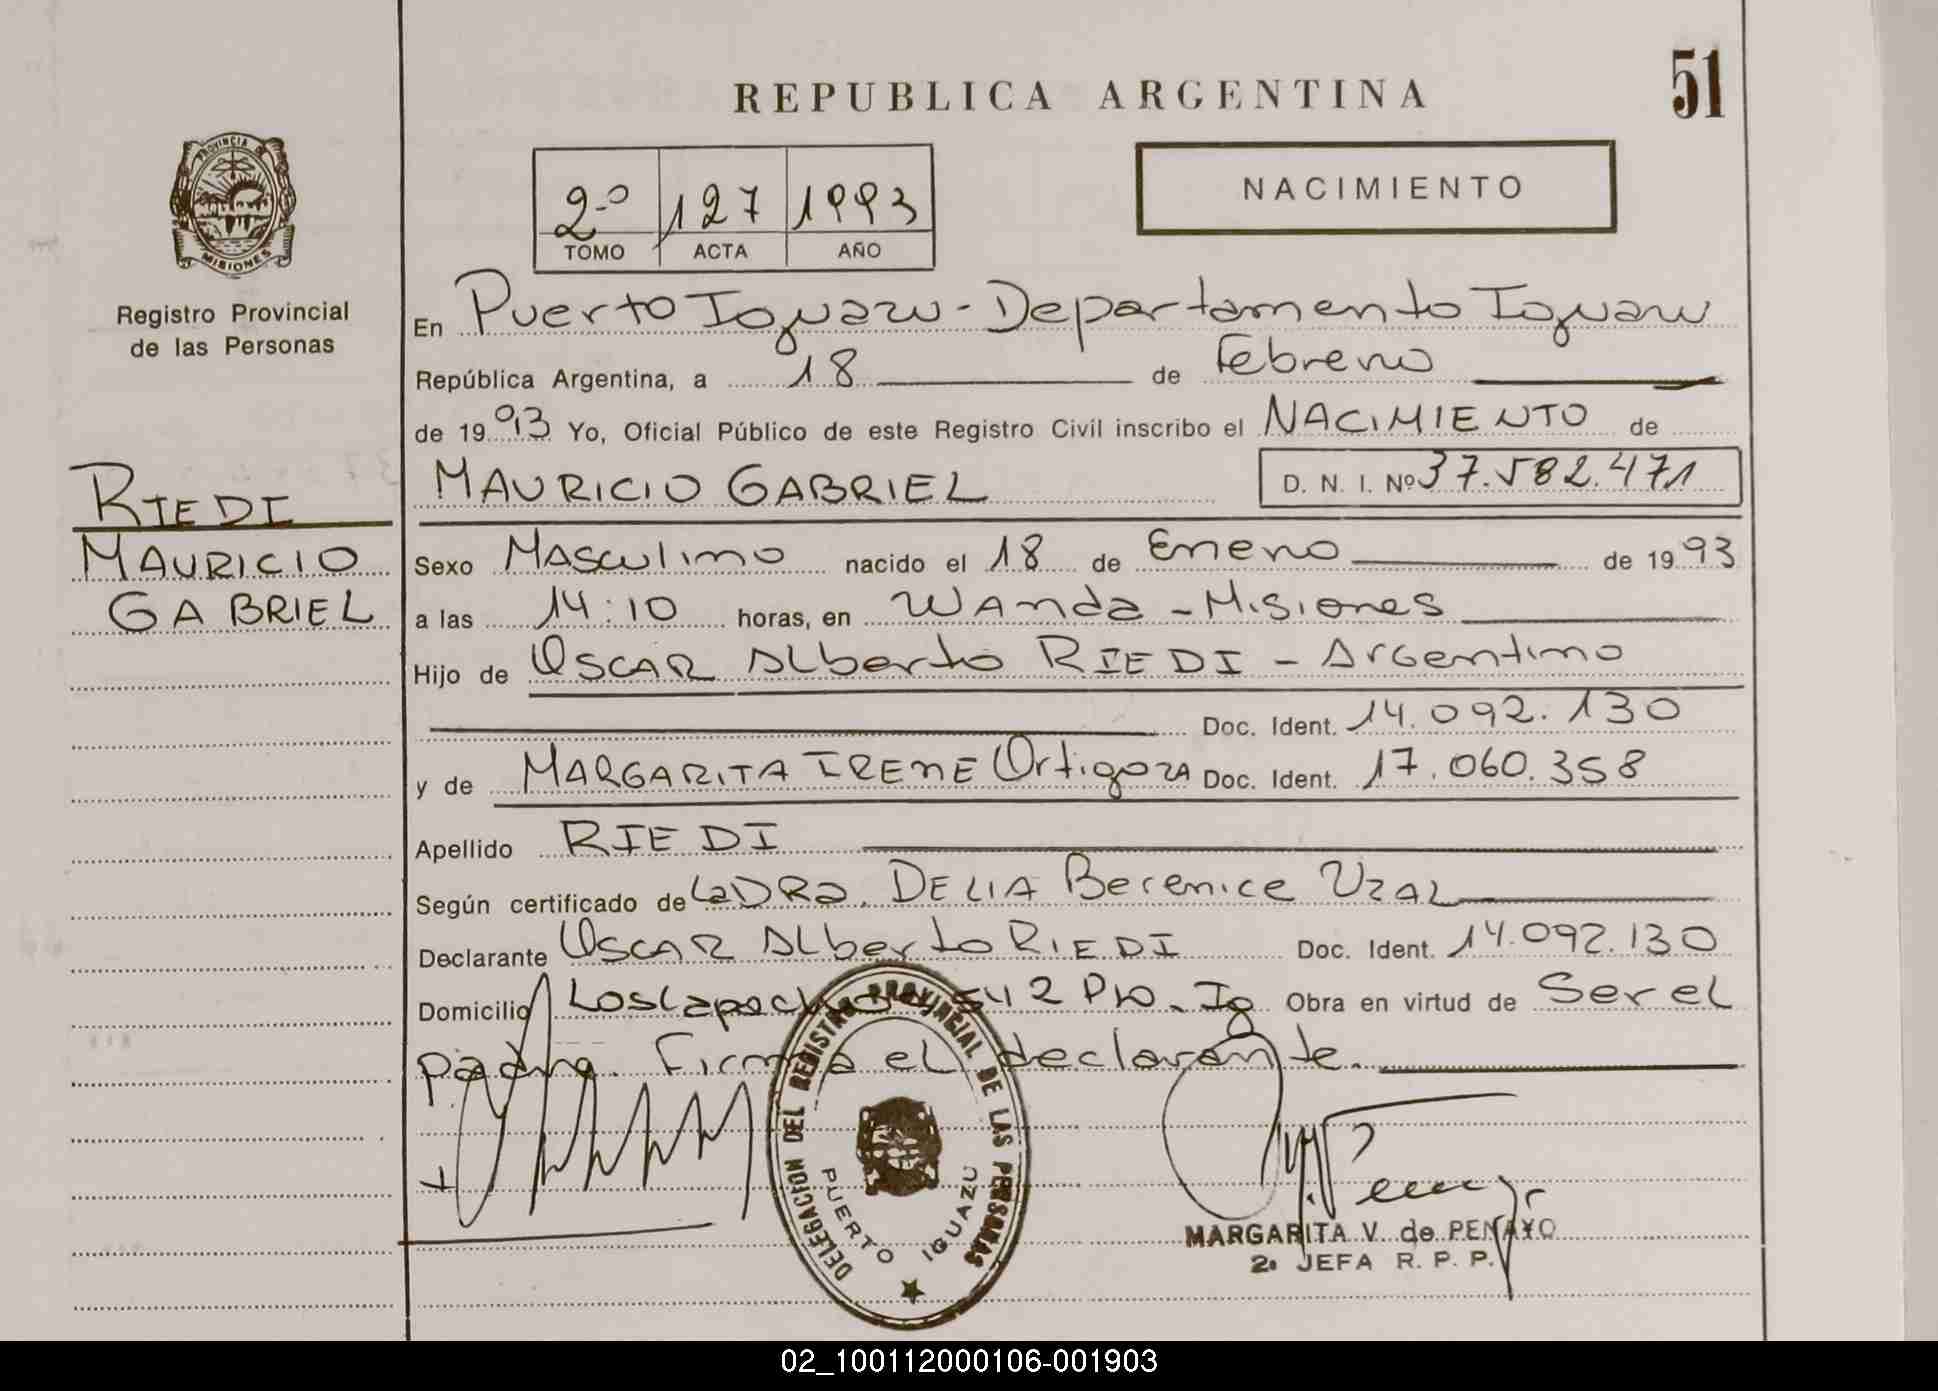 51
REPUBLICA ARGENTINA
NACIMIENTO
2º 127 1993
TOMO ACTA AÑO
PROVINCIA DE
MISIONES
Registro Provincial
de las Personas
RIEDI
MAURICIO
GABRIEL
En Puerto Iguazu - Departamento Iguazu
República Argentina, a 18 de Febrero
de 1993 Yo, Oficial Público de este Registro Civil inscribo el NACIMIENTO de
MAURICIO GABRIEL D. N. I. Nº 37.582.471
Sexo Masculino nacido el 18 de Enero de 1993
a las 14:10 horas, en Wanda - Misiones
Hijo de Oscar Alberto RIEDI - Argentino
Doc. Ident. 14.092.130
y de MARGARITA IRENE Ortigoza Doc. Ident. 17.060.358
Apellido RIEDI
Según certificado de la DRa. DELIA Berenice UZAL
Declarante Oscar Alberto RIEDI Doc. Ident. 14.092.130
Domicilio Los Lapachos 542 Pto. Ig Obra en virtud de Ser el
padre. Firma el declarante.
DELEGACION DEL REGISTRO PROVINCIAL DE LAS PERSONAS
PUERTO IGUAZU
MARGARITA V. de PENAYO
2ª JEFA R. P. P.
02_100112000106-001903